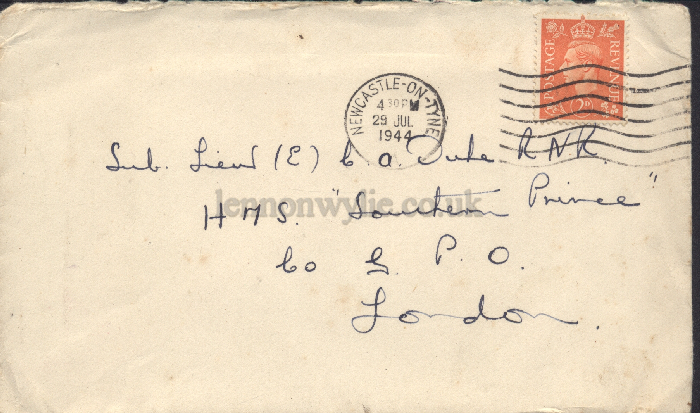 POSTAGE REVENUE
2D
NEWCASTLE-ON-TYNE
4 30 PM
29 JUL
1944
Sub. Lieut (E) C. A. Duke R.N.R.
H.M.S. "Southern Prince"
C/o G. P. O.
London.
lennonwylie.co.uk